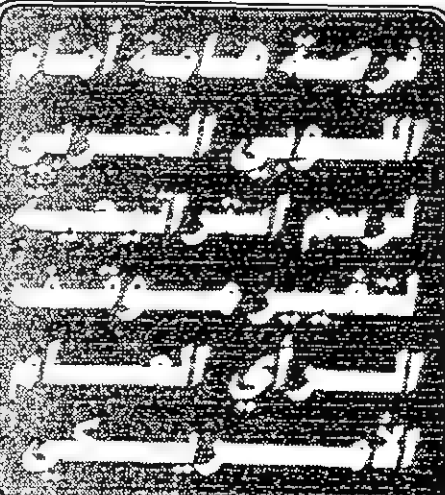 فرصة هامة أمام
اللوبي العربي
لرسم استراتيجية
لتغيير موقف
الرأي العام
الأمريكي